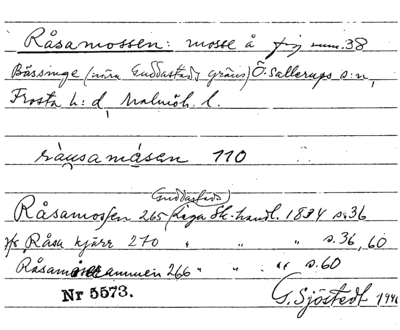 Råsamossen: mosse å fig num. 38
Bässinge (nära Guddastads gräns) Ö. Sallerups s:n,
Frosta h:d, Malmöh. l.
råusamåsen 110
Råsamossen 265 (Guddastads) Laga Sk-handl. 1884 s. 36
Råsa kjärr 270 " " " s. 36, 60
266 " " " s. 60
Nr 5573.
G. Sjöstedt